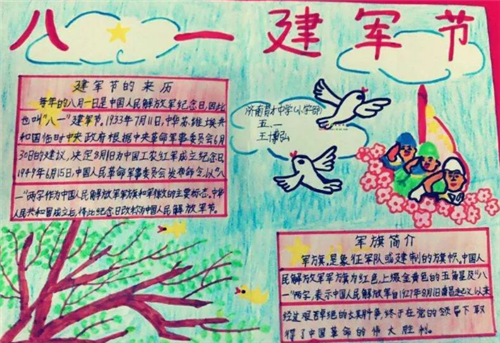 八一建军节
建军节的来历
每年的八月一日是中国人民解放军纪念日,因此
也叫“八一”建军节。1933年7月11日,中华苏维埃共
和国临时中央政府根据中央革命军事委员会6月
30日的建议,决定8月1日为中国工农红军成立纪念日
1949年6月15日,中国人民革命军事委员会发布命令,以“八
一”两字作为中国人民解放军军旗和军徽的主要标志。中华
人民共和国成立后,将此纪念日改称为中国人民解放军建军节。
济南育才中学(小学部)
五.一
王博弘
军旗简介
军旗,是象征军队或建制的旗帜,中国人
民解放军军旗为红色,上缀金黄色的五角星及“八
一”两字,表示中国人民解放军自1927年8月1日南昌起义以来
经过艰苦卓绝的长期斗争,终于在党的领导下取
得了中国革命的伟大胜利。